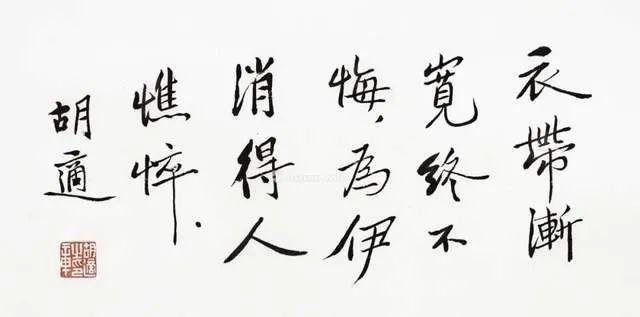 衣帶漸
寬終不
悔，為伊
消得人
憔悴．
胡適
胡適
之印